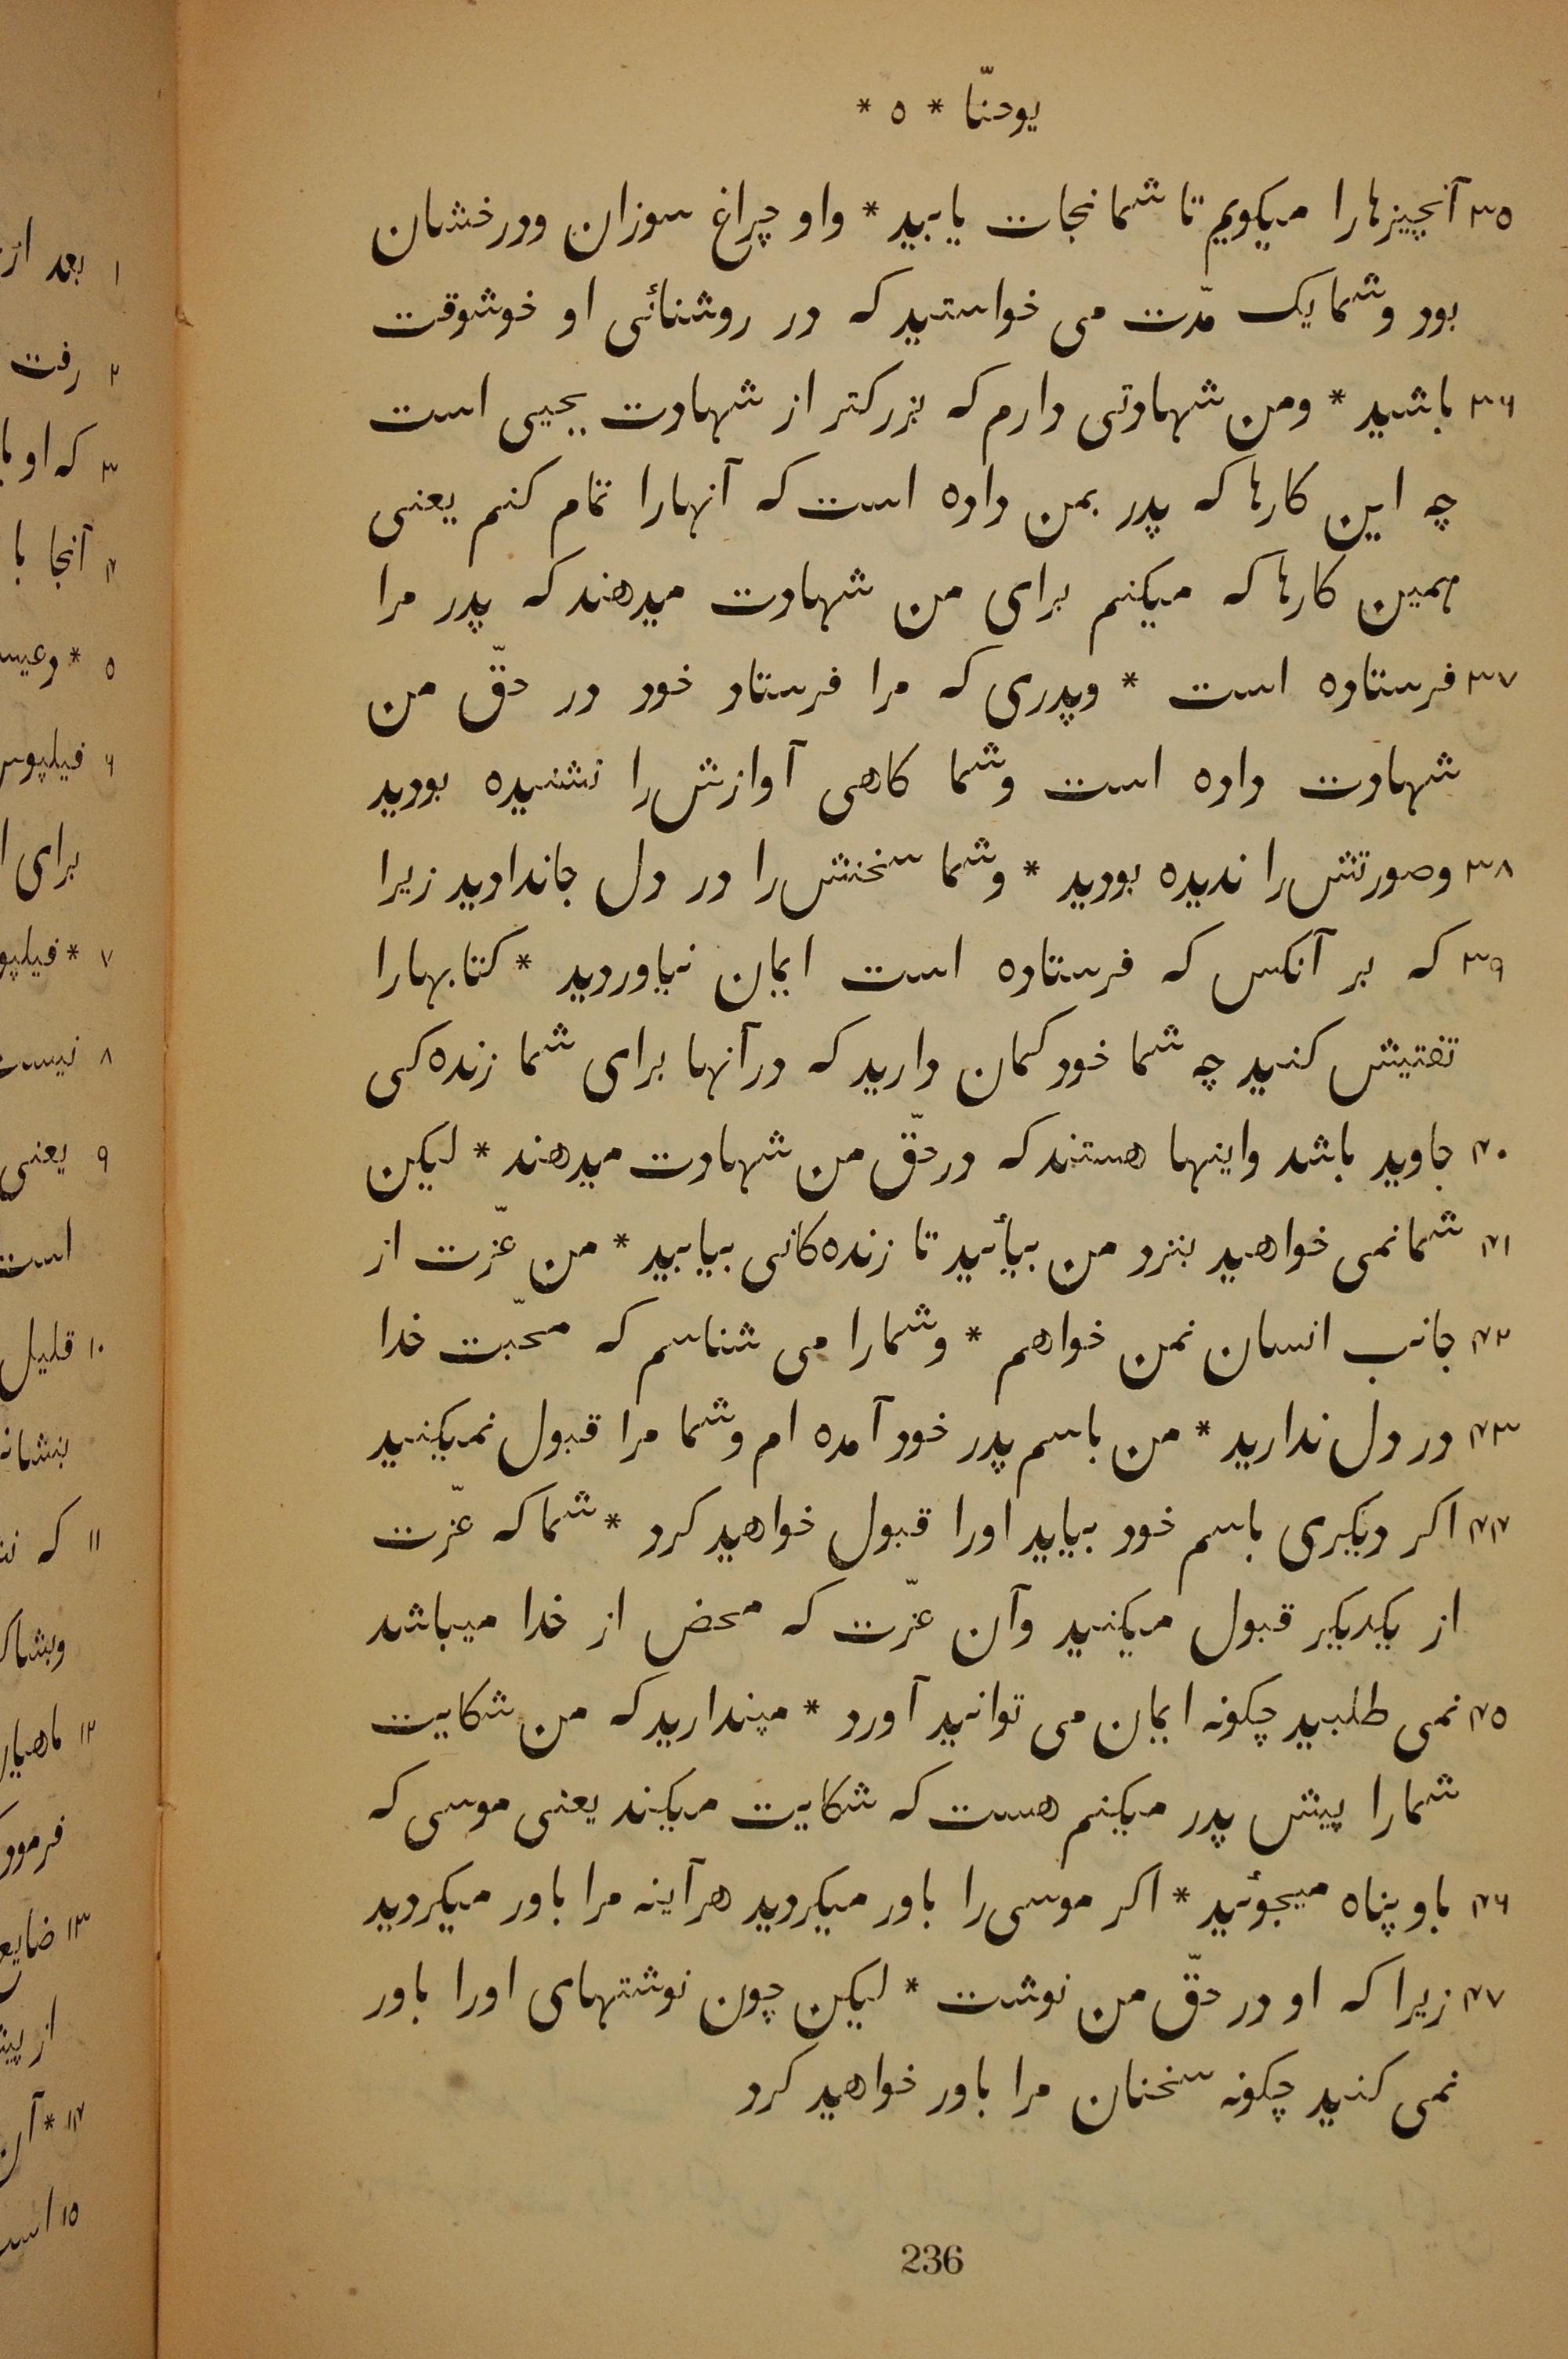 یوحنّا * ٥ *
٣٥ آنچیزها را میکویم تا شما نجات یابید * واو چراغ سوزان ودرخشان
بود وشما یک مدّت می خواستید که در روشنائی او خوشوقت
٣٦ باشید * ومن شهادتی دارم که بزرکتر از شهادت یحیی است
چه این کارها که پدر بمن داده است که آنهارا تمام کنم یعنی
همین کارها که میکنم برای من شهادت میدهند که پدر مرا
٣٧ فرستاده است * وپدری که مرا فرستاد خود در حقّ من
شهادت داده است وشما کاهی آوازش را نشنیده بودید
٣٨ وصورتش را ندیده بودید * وشما سخنش را در دل جاندادید زیرا
٣٩ که بر آنکس که فرستاده است ایمان نیاوردید * کتابهارا
تفتیش کنید چه شما خود کمان دارید که درآنها برای شما زنده کی
۴٠ جاوید باشد واینها هستند که درحقّ من شهادت میدهند * لیکن
۴١ شما نمی خواهید بنزد من بیأئید تا زنده کانی بیابید * من عزّت از
۴٢ جانب انسان نمن خواهم * وشمارا می شناسم که محبّت خدا
۴٣ در دل ندارید * من باسم پدر خود آمده ام وشما مرا قبول نمیکنید
۴۴ اکر دیکری باسم خود بیاید اورا قبول خواهید کرد * شما که عزّت
از یکدیکر قبول میکنید وآن عزّت که محض از خدا میباشد
۴٥ نمی طلبید چکونه ایمان می توانید آورد * مپندارید که من شکایت
شمارا پیش پدر میکنم هست که شکایت میکند یعنی موسی که
۴٦ باو پناه میجوئید * اکر موسی را باور میکردید هرآینه مرا باور میکردید
۴٧ زیرا که او در حقّ من نوشت * لیکن چون نوشتهای اورا باور
نمی کنید چکونه سخنان مرا باور خواهید کرد
236
١ بعد از
٢ رفت
٣ که او با
۴ آنجا با
٥ * وعیس
٦ فیلپوس
برای ا
٧ * فیلپو
٨ نیست
٩ یعنی
است
١٠ قلیل
بنشان
١١ که
وبشاک
١٢ ماهیا
فرمود
١٣ ضایع
از پی
١۴ * آ
١٥ است